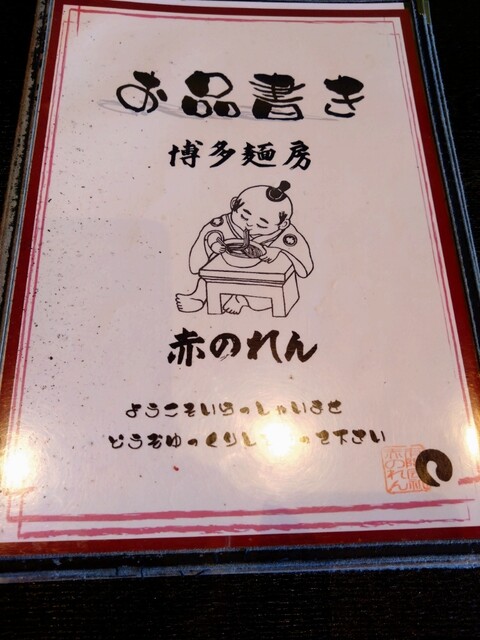 お品書き
博多麺房
赤のれん
ようこそいらっしゃいませ
どうぞゆっくりして って下さい
赤のれん